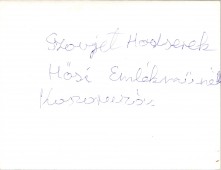 Szovjet Hadserek
Hősi Emlékműnél
Koszorúzás